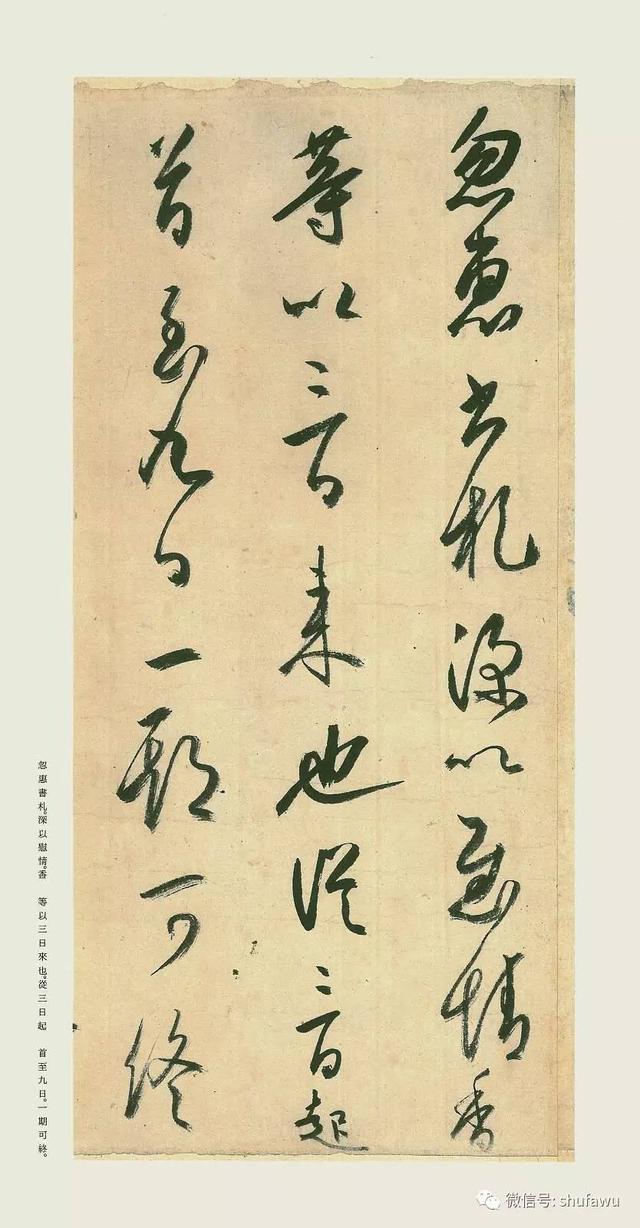 忽惠書札深以慰情香
等以三日来也従三日起
首至九日一期可終
忽惠書札。深以慰情。香　等以三日來也。從三日起　首至九日。一期可終。
微信号: shufawu